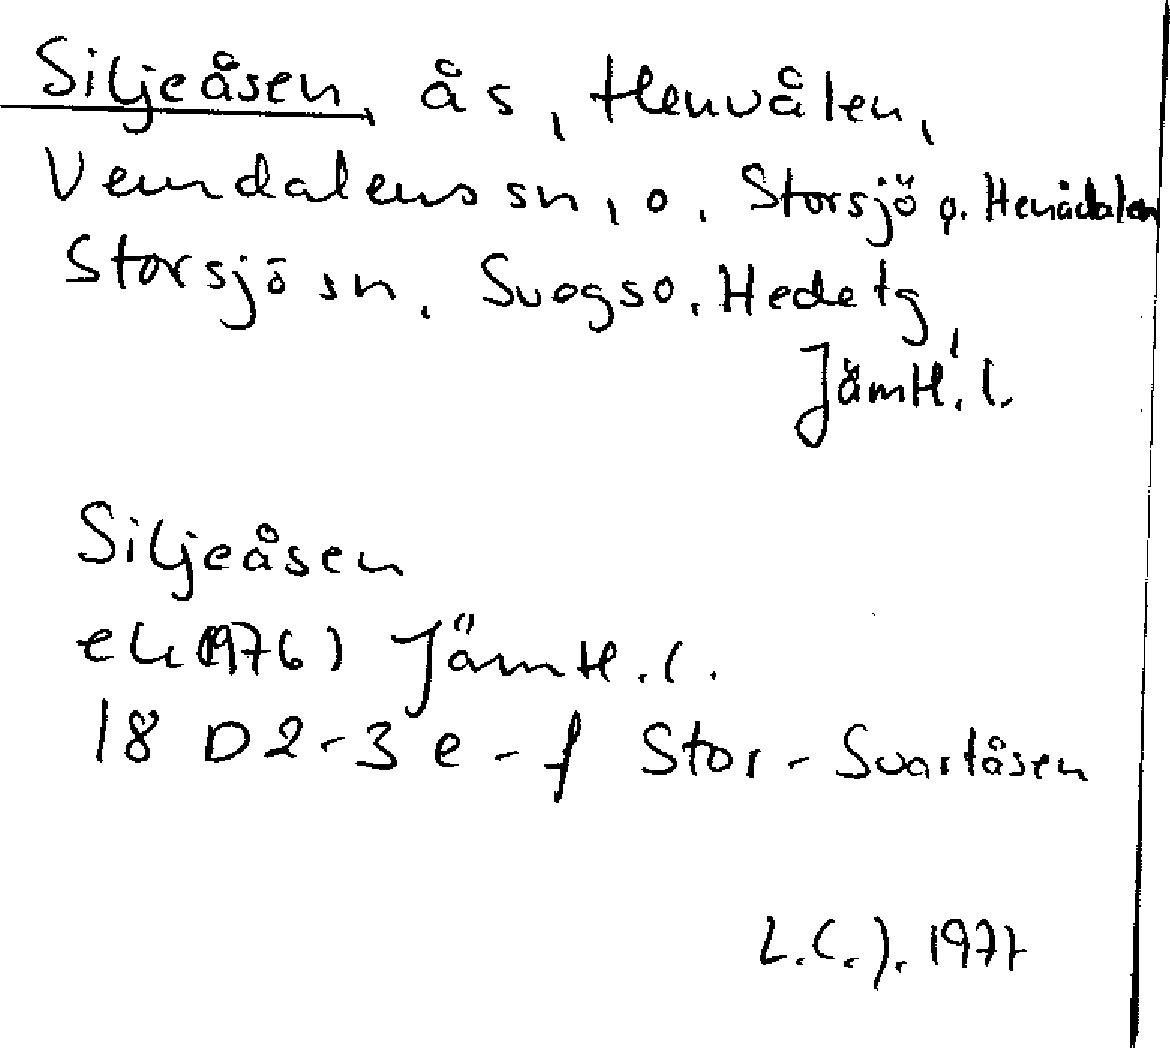 Siljeåsen, ås, Henvålen,
Vemdalens sn, o. Storsjö o. Henådalen
Storsjö sn. Svegs o. Hede tg,
Jämtl. l.
Siljeåsen
ek (1976) Jämtl. l.
18 D 2-3 e-f Stor-Svartåsen
L.C.J. 1977